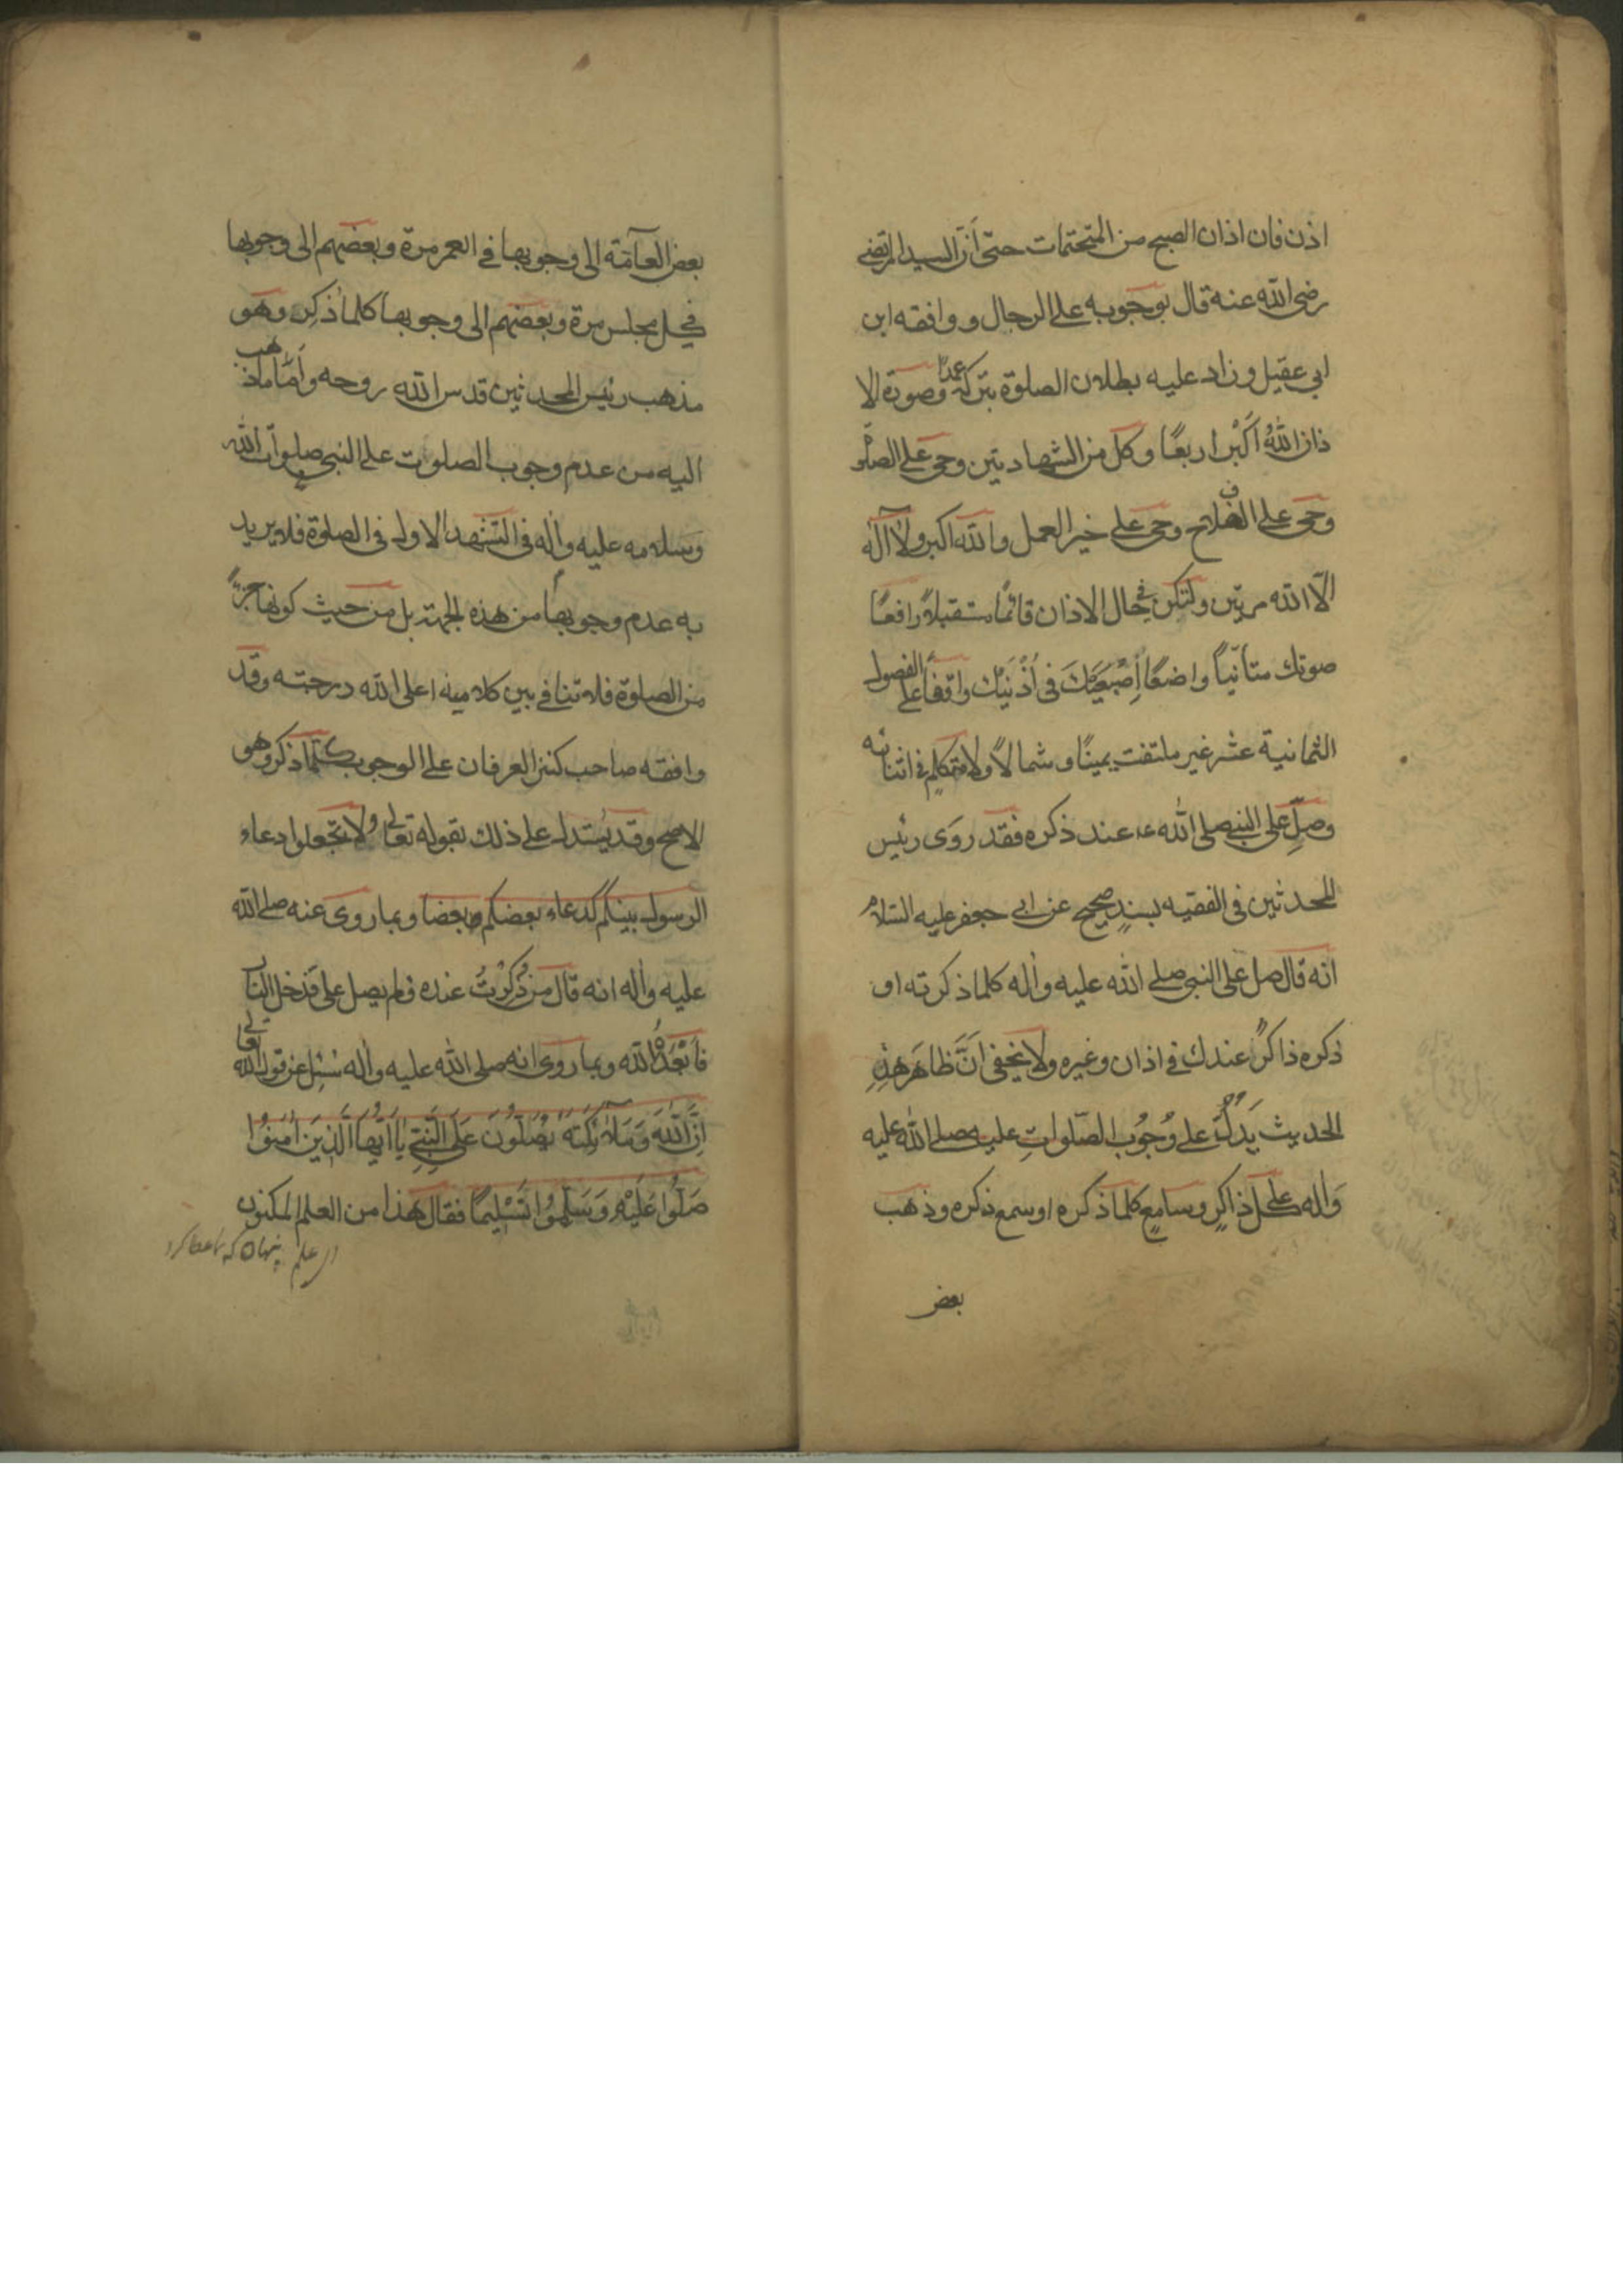 اذن فان اذان الصبح من المتحتمات حتى اَنّ السيد المرتضى
رضى الله عنه قال بوجوبه على الرجال و وافقه ابن
ابى عقيل وزاد عليه بطلان الصلوة بتركه عمداً وصورة الا
ذان اللهُ اَكْبَر اربعًا وكل من الشهادتين وحى على الصلوة
وحى على الفلاح وحى على خير العمل والله اكبر ولا آله
الّا الله مرتين ولتكن فى حال الاذان قائمًا مستقبلاً رافعًا
صوتك متأنياً واضعًا اِصْبَعَيْكَ فى اُذْنَيْك واقفاً على الفصول
الثمانية عشر غير ملتفت يمينًا و شمالاً ولا متكلمٍ فى اثنائه
وصلِّ على النبى صلى الله عند ذكره فقد روَى رئيس
المحدثين فى الفقيه بسندٍ صحيح عن ابى جعفر عليه السّلام
انه قال صل على النبى صلى الله عليه واٰله كلما ذكرته او
ذكره ذاكرٌ عندك فى اذان وغيره ولا يخفى اَنَّ ظاهَر هذِهِ
الحديث يَدُلُّ على وُجُوب الصّلواتِ عليه صلى الله عليه
وَاٰله على كل ذاكرٍ وسامعٍ كلما ذكره او سمع ذكره وذهب
بعض
بعض العآمّة الى وجوبها فى العمر مرة وبعضهم الى وجوبها
فى كل مجلس مرة وبعضهم الى وجوبها كلما ذكِر وهو
مذهب رئيس المحدثين قدس الله روحه واَمّا ما ذهب
اليه من عدم وجوب الصلوت على النبى صلوات الله
وسلامه عليه واٰله فى التشهد الاول فى الصلوة فلا يريد
به عدم وجوبها من هذه الجهة بل من حيث كونها جزءً
من الصلوة فلا تنافى بين كلاميه اعلى الله درجته وقد
وافقه صاحب كنز العرفان على الوجوب كلّما ذكر وهو
الاصح وقد يُستدل على ذلك بقوله تعالى ولا تجعلوا دعاء
الرسول بينكم كدعاء بعضكم بعضا وبما روى عنه صلى الله
عليه واٰله انه قال من ذُكِرْتُ عنده فلم يصل على فدخل النار
فاَبْعَدَهُ الله وبما روى انه صلى الله عليه واٰله سُئِل عن قول الله تعالى
اِنَّ اللهَ وَمَلاٰئِكَتَهُ يُصَلُّونَ عَلَى النَّبِيّ يٰا اَيُّهَا الَّذِينَ اٰمَنُوا
صَلُّوا عَلَيْهِ وَسَلِّمُوا تَسْلِيمًا فقال هذا من العلم المكنون
از علم پنهان كه